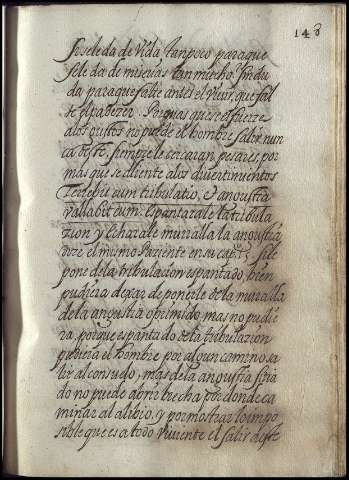 148
se le da de Vida tan poco para que
se le da de miserias tan mucho? sin du
da para que falte antes el vivir, que fal
te el padezer. Por mas que se esfuerze
a los gustos no puede el hombre salir nun
ca deste, siempre le cercaran pesares, por
mas que se aliente a los divertimientos
Terrebit eum tribulatio, & angustia
vallabit eum: espantarale la tribula
zion y Echarale muralla la angustia
dize el mismo Paziente en su cap.
pone de la tribulacion espantado, bien
pudiera dexar de ponerle de la muralla
de la angustia oprimido, mas no pudie
ra, porque espantado de la tribulazion
pudiera el hombre por algun camino sa
lir al consuelo, mas de la angustia sitia
do no puede abrir brecha por donde ca
minar al alibio, y por mostrar lo impo
sible que es a todo viviente el salir deste